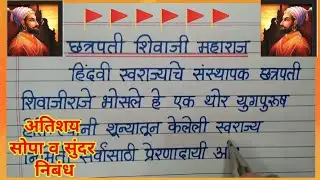 छत्रपती शिवाजी महाराज
हिंदवी स्वराज्याचे संस्थापक छत्रपती
शिवाजीराजे भोसले हे एक थोर युगपुरुष
नी शून्यातून केलेली स्वराज्य
सर्वांसाठी प्रेरणादायी
अतिशय
सोपा व सुंदर
निबंध